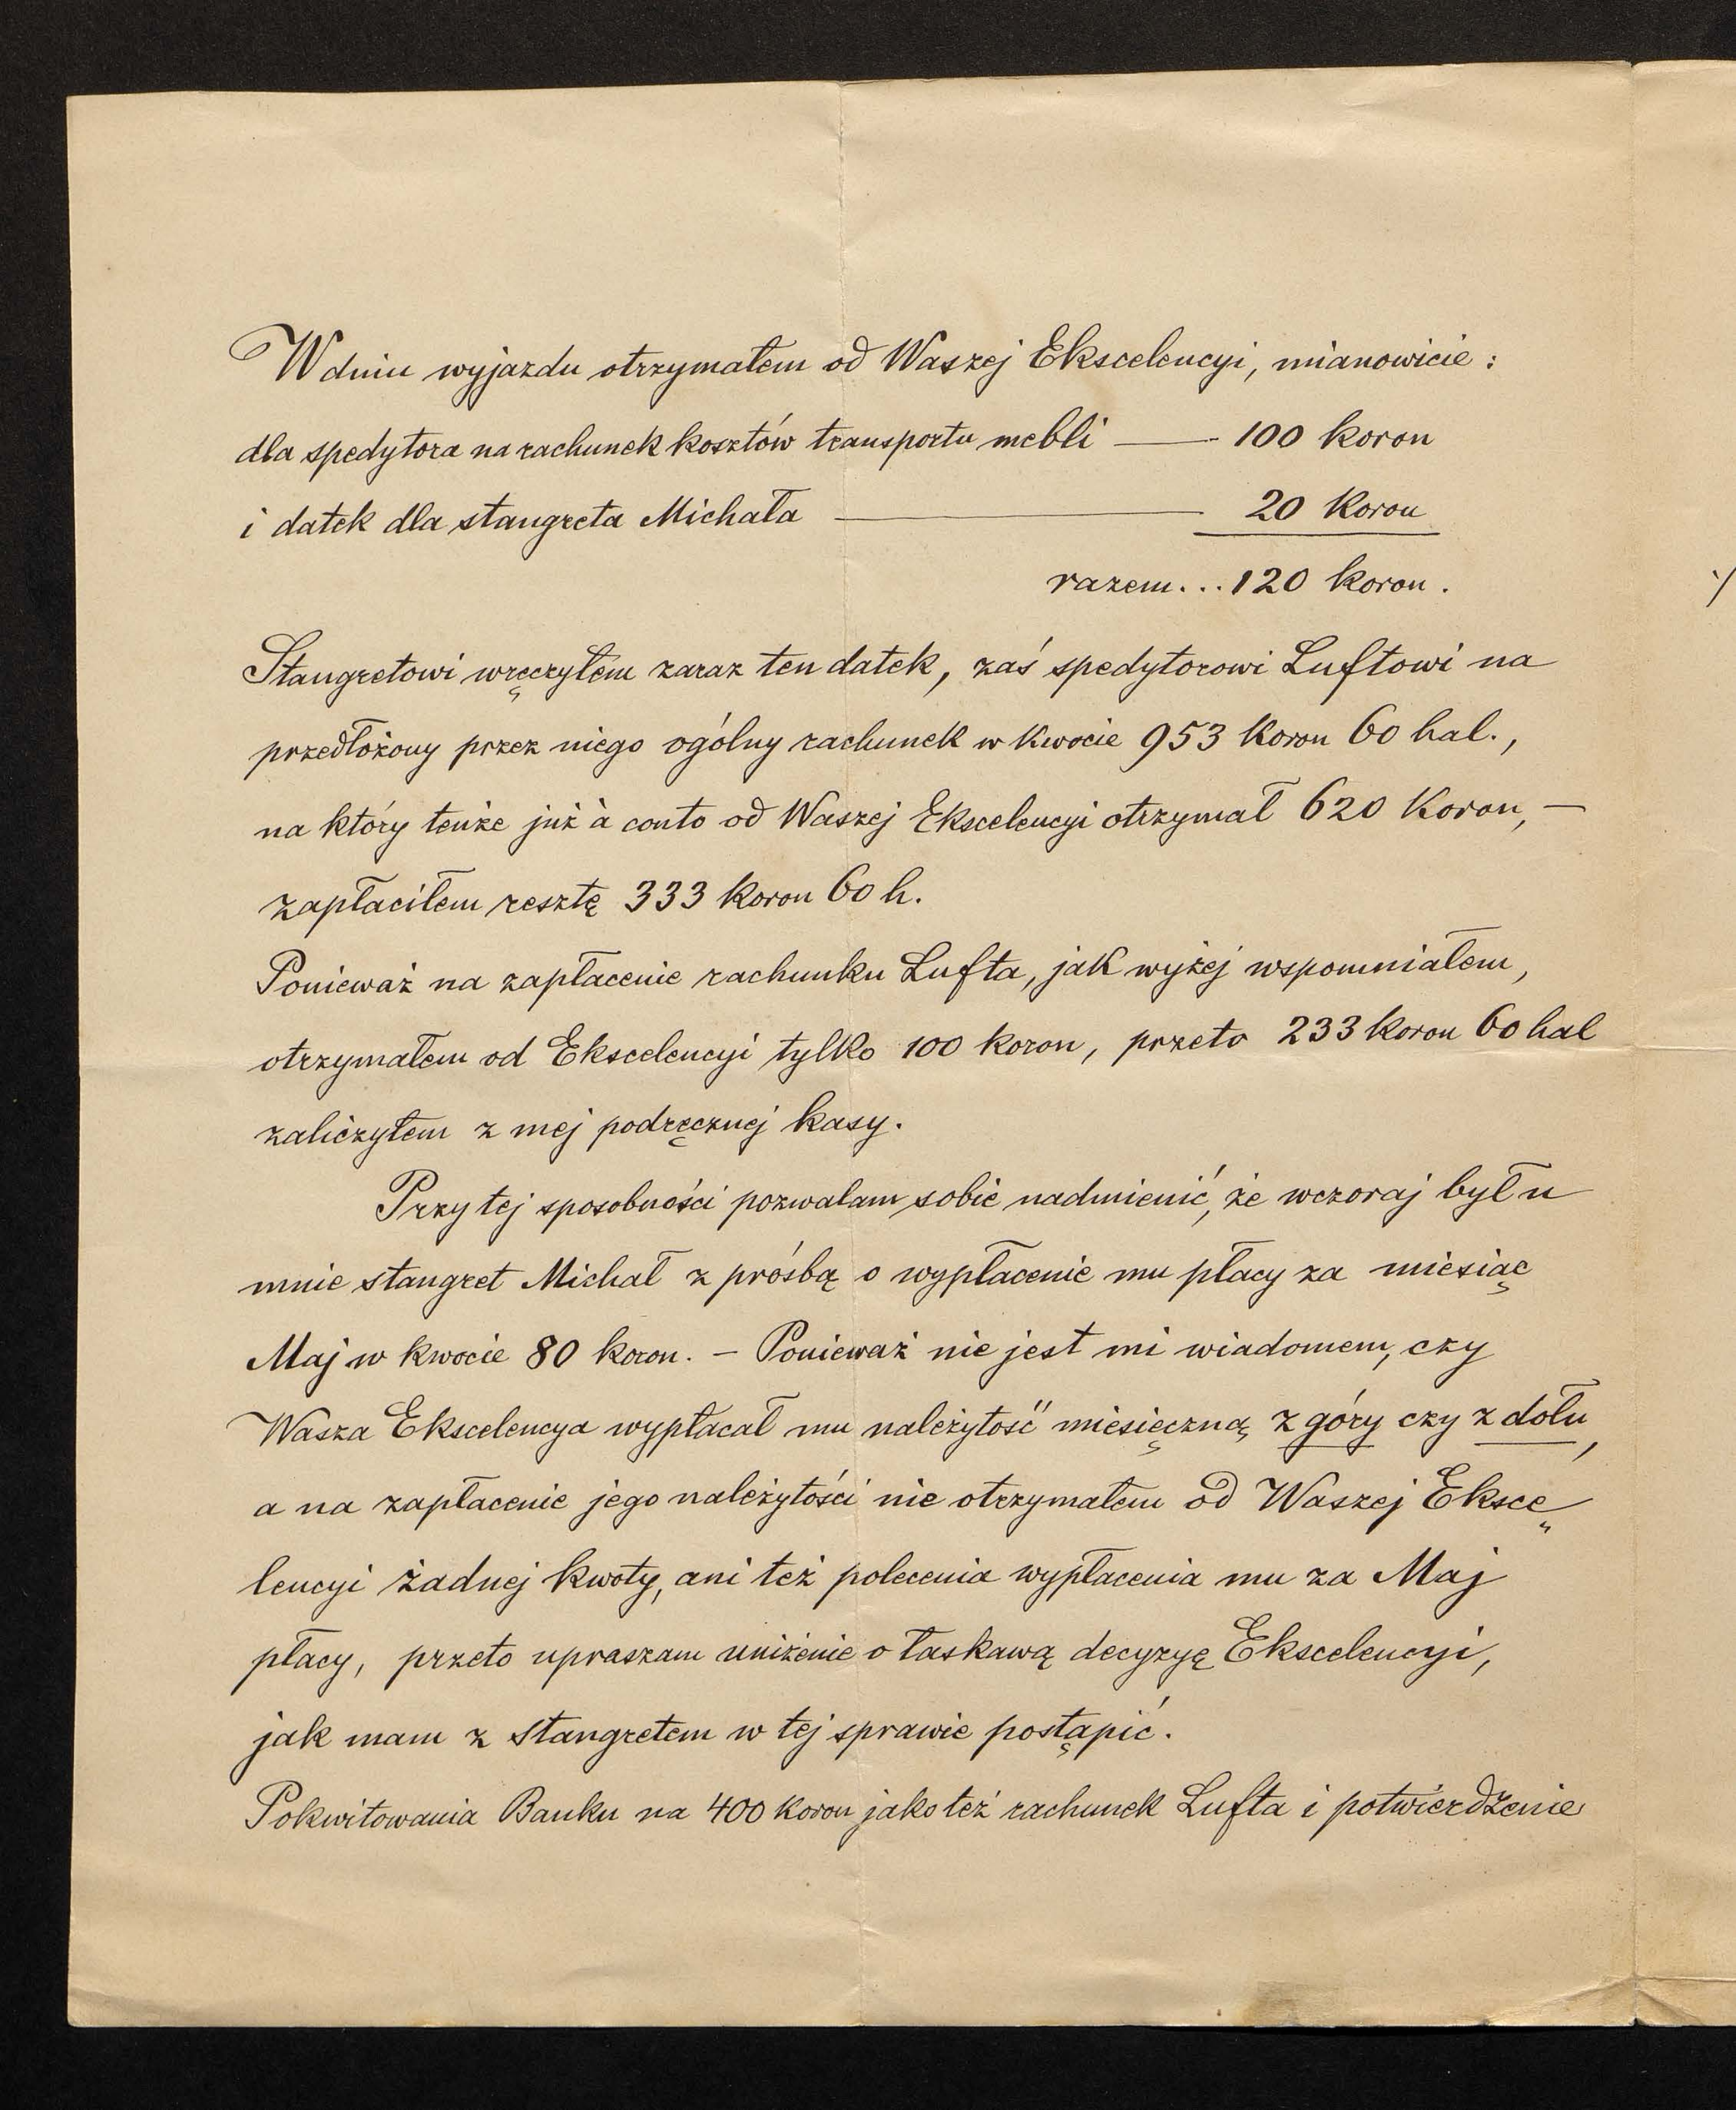 W dniu wyjazdu otrzymałem od Waszej Ekscelencyi, mianowicie:
dla spedytora na rachunek kosztów transportu mebli — 100 koron
i datek dla stangreta Michała — 20 koron
razem... 120 koron.
Stangretowi wręczyłem zaraz ten datek, zaś spedytorowi Luftowi na
przedłożony przez niego ogólny rachunek w kwocie 953 koron 60 hal.,
na który tenże już à conto od Waszej Ekscelencyi otrzymał 620 koron, —
zapłaciłem resztę 333 koron 60 h.
Ponieważ na zapłacenie rachunku Lufta, jak wyżej wspomniałem,
otrzymałem od Ekscelencyi tylko 100 koron, przeto 233 koron 60 hal
zaliczyłem z mej podręcznej kasy.
Przy tej sposobności pozwalam sobie nadmienić, że wczoraj był u
mnie stangret Michał z prośbą o wypłacenie mu płacy za miesiąc
Maj w kwocie 80 koron. — Ponieważ nie jest mi wiadomem, czy
Wasza Ekscelencya wypłacał mu należytość miesięczną z góry czy z dołu,
a na zapłacenie jego należytości nie otrzymałem od Waszej Eksce„
lencyi żadnej kwoty, ani też polecenia wypłacenia mu za Maj
płacy, przeto upraszam uniżenie o łaskawą decyzyę Ekscelencyi,
jak mam z stangretem w tej sprawie postąpić.
Pokwitowania Banku na 400 koron jakoteż rachunek Lufta i potwierdzenie